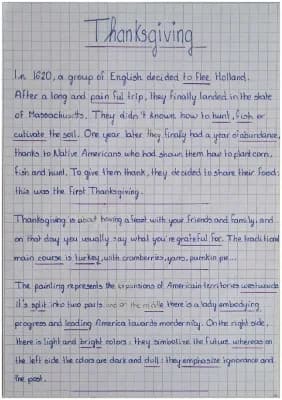 Thanksgiving
In 1620, a group of English decided to flee Holland.
After a long and painful trip, they finally landed in the state
of Massachusetts. They didn't known how to hunt, fish or
cultivate the soil. One year later they finally had a year of abundance,
thanks to Native Americans who had shown them how to plant corn,
fish and hunt. To give them thank, they decided to share their food:
this was the first Thanksgiving.
Thanksgiving is about having a feast with your friends and family, and
on that day you usually say what you're grateful for. The traditional
main course is turkey, with cramberries, yams, pumkin pie...
The painting represents the expansions of Americain territories westwards
it's split into two parts and on the middle there is a lady embodying
progress and leading America towards mordernity. On the right side,
there is light and bright colors: they simbolize the future, whereas on
the left side the colors are dark and dull: they emphasize ignorance and
the past.